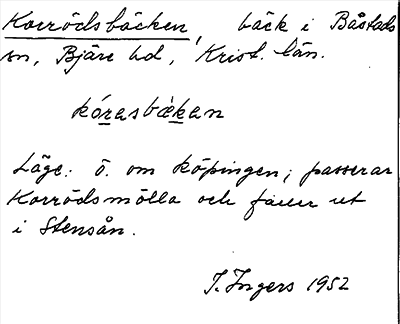 Korrödsbäcken, bäck i Båstads
sn, Bjäre hd, Krist. län.
kórasbä̀kan
Läge: ö. om köpingen; passerar
Korrödsmölla och faller ut
i Stensån.
I. Ingers 1952